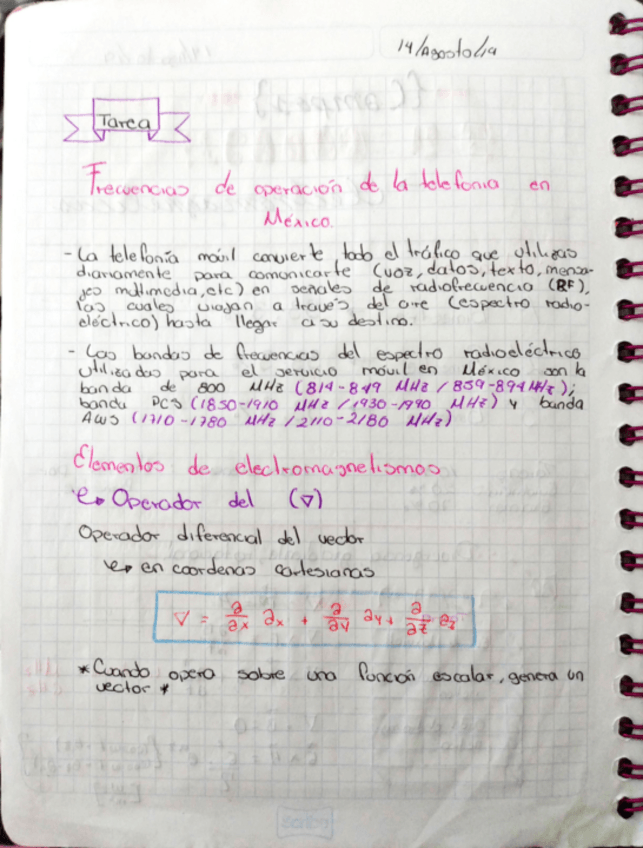 14/Agosto/19
Tarea
Frecuencias de operación de la telefonia en
México.
- La telefonía móvil convierte todo el tráfico que utilizas
diariamente para comunicarte (voz, datos, texto, mensa-
jes multimedia, etc) en señales de radiofrecuencia (RF),
las cuales viajan a través del aire (espectro radio-
eléctrico) hasta llegar a su destino.
- Las bandas de frecuencias del espectro radioeléctrico
utilizadas para el servicio móvil en México son la
banda de 800 MHz (814-849 MHz / 859-894 MHz);
banda PCS (1850-1910 MHz / 1930-1990 MHz) y banda
AWS (1710-1780 MHz / 2110-2180 MHz)
Elementos de electromagnetismos
Operador del (∇)
Operador diferencial del vector
en coordenas cartesianas
∇ = ∂/∂x ax + ∂/∂y ay + ∂/∂z az
*Cuando opera sobre una función escalar, genera un
vector *